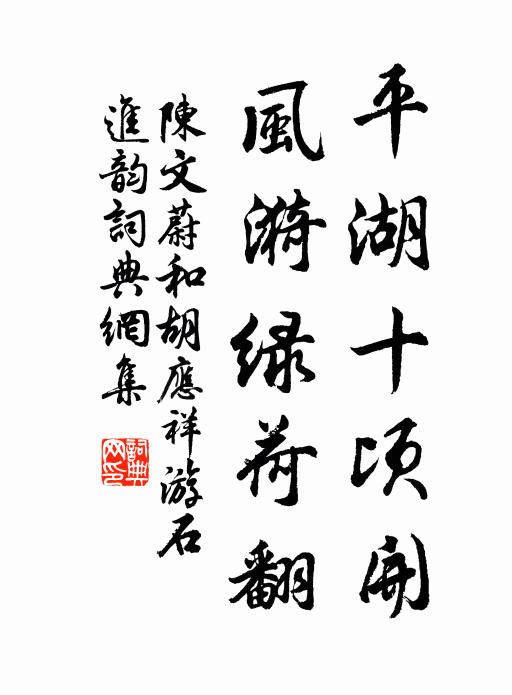 平湖十頃開
風漪綠荷翻
陳文蔚和胡應祥游石
進韵詞典網集
詞典网印